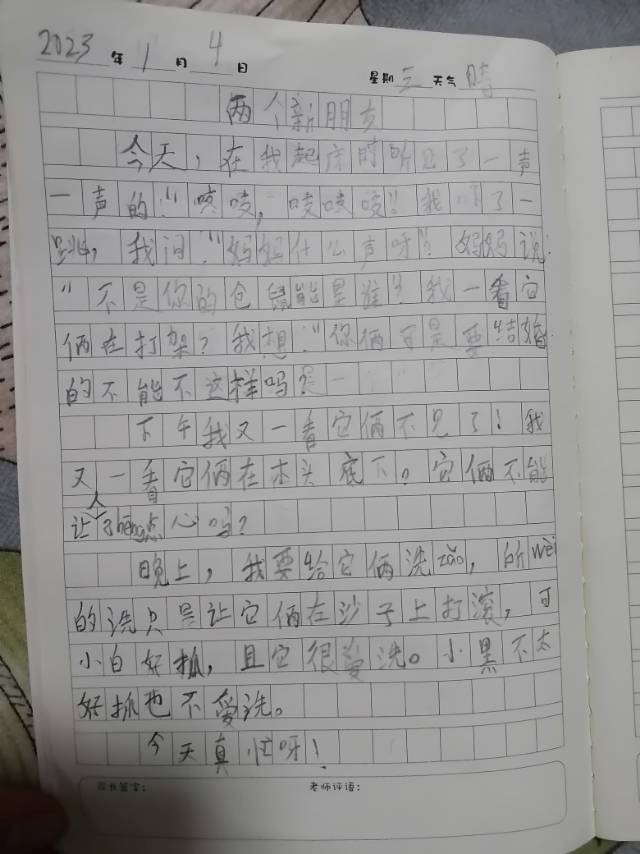 2023 年 1 月 4 日 星期 三 天气 晴
两个新朋友
今天，在我起床时听见了一声
一声的："咳咳，咳咳咳！"我吓了一
跳，我问："妈妈什么声呀"？妈妈说：
"不是你的仓鼠能是谁"？我一看它
俩在打架？我想："你俩可是要结婚
的不能不这样吗？
下午我又一看它俩不见了！我
又一看它俩在木头底下？它俩不能
让人省点心吗？
晚上，我要给它俩洗zǎo，所wèi
的洗只是让它俩在沙子上打滚，可
小白好抓，且它很爱洗。小黑不太
好抓也不爱洗。
今天真忙呀！
家长签字： 老师评语：